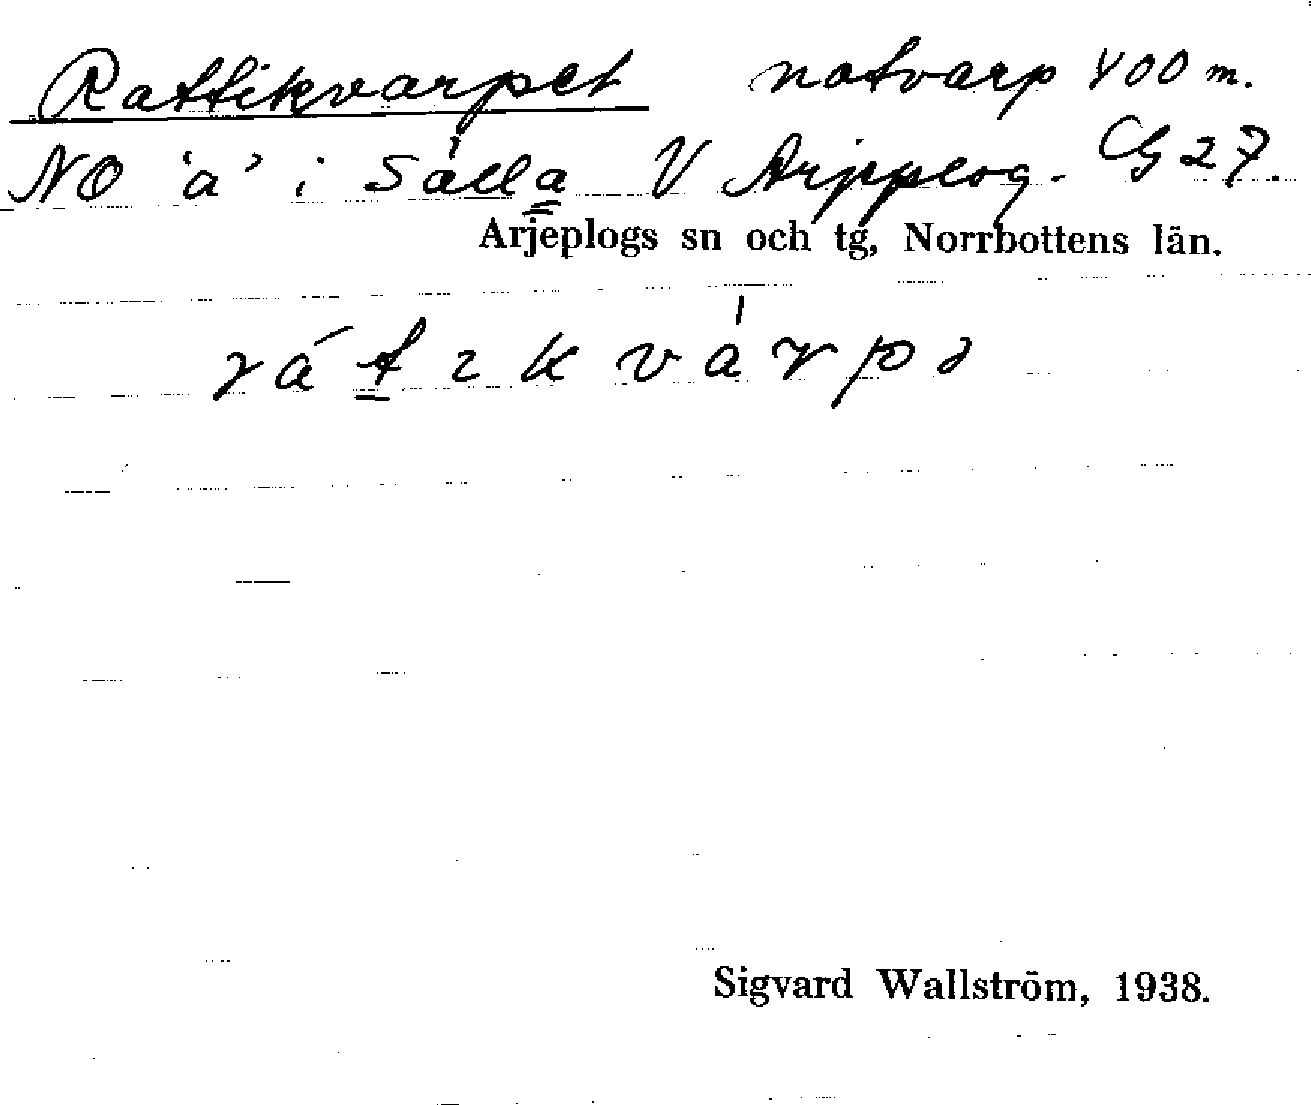 Rattikvarpet notvarp 400 m.
NO 'a' i Sálla V Arjeplog. G 27.
Arjeplogs sn och tg, Norrbottens län.
rátikvàrpə
Sigvard Wallström, 1938.